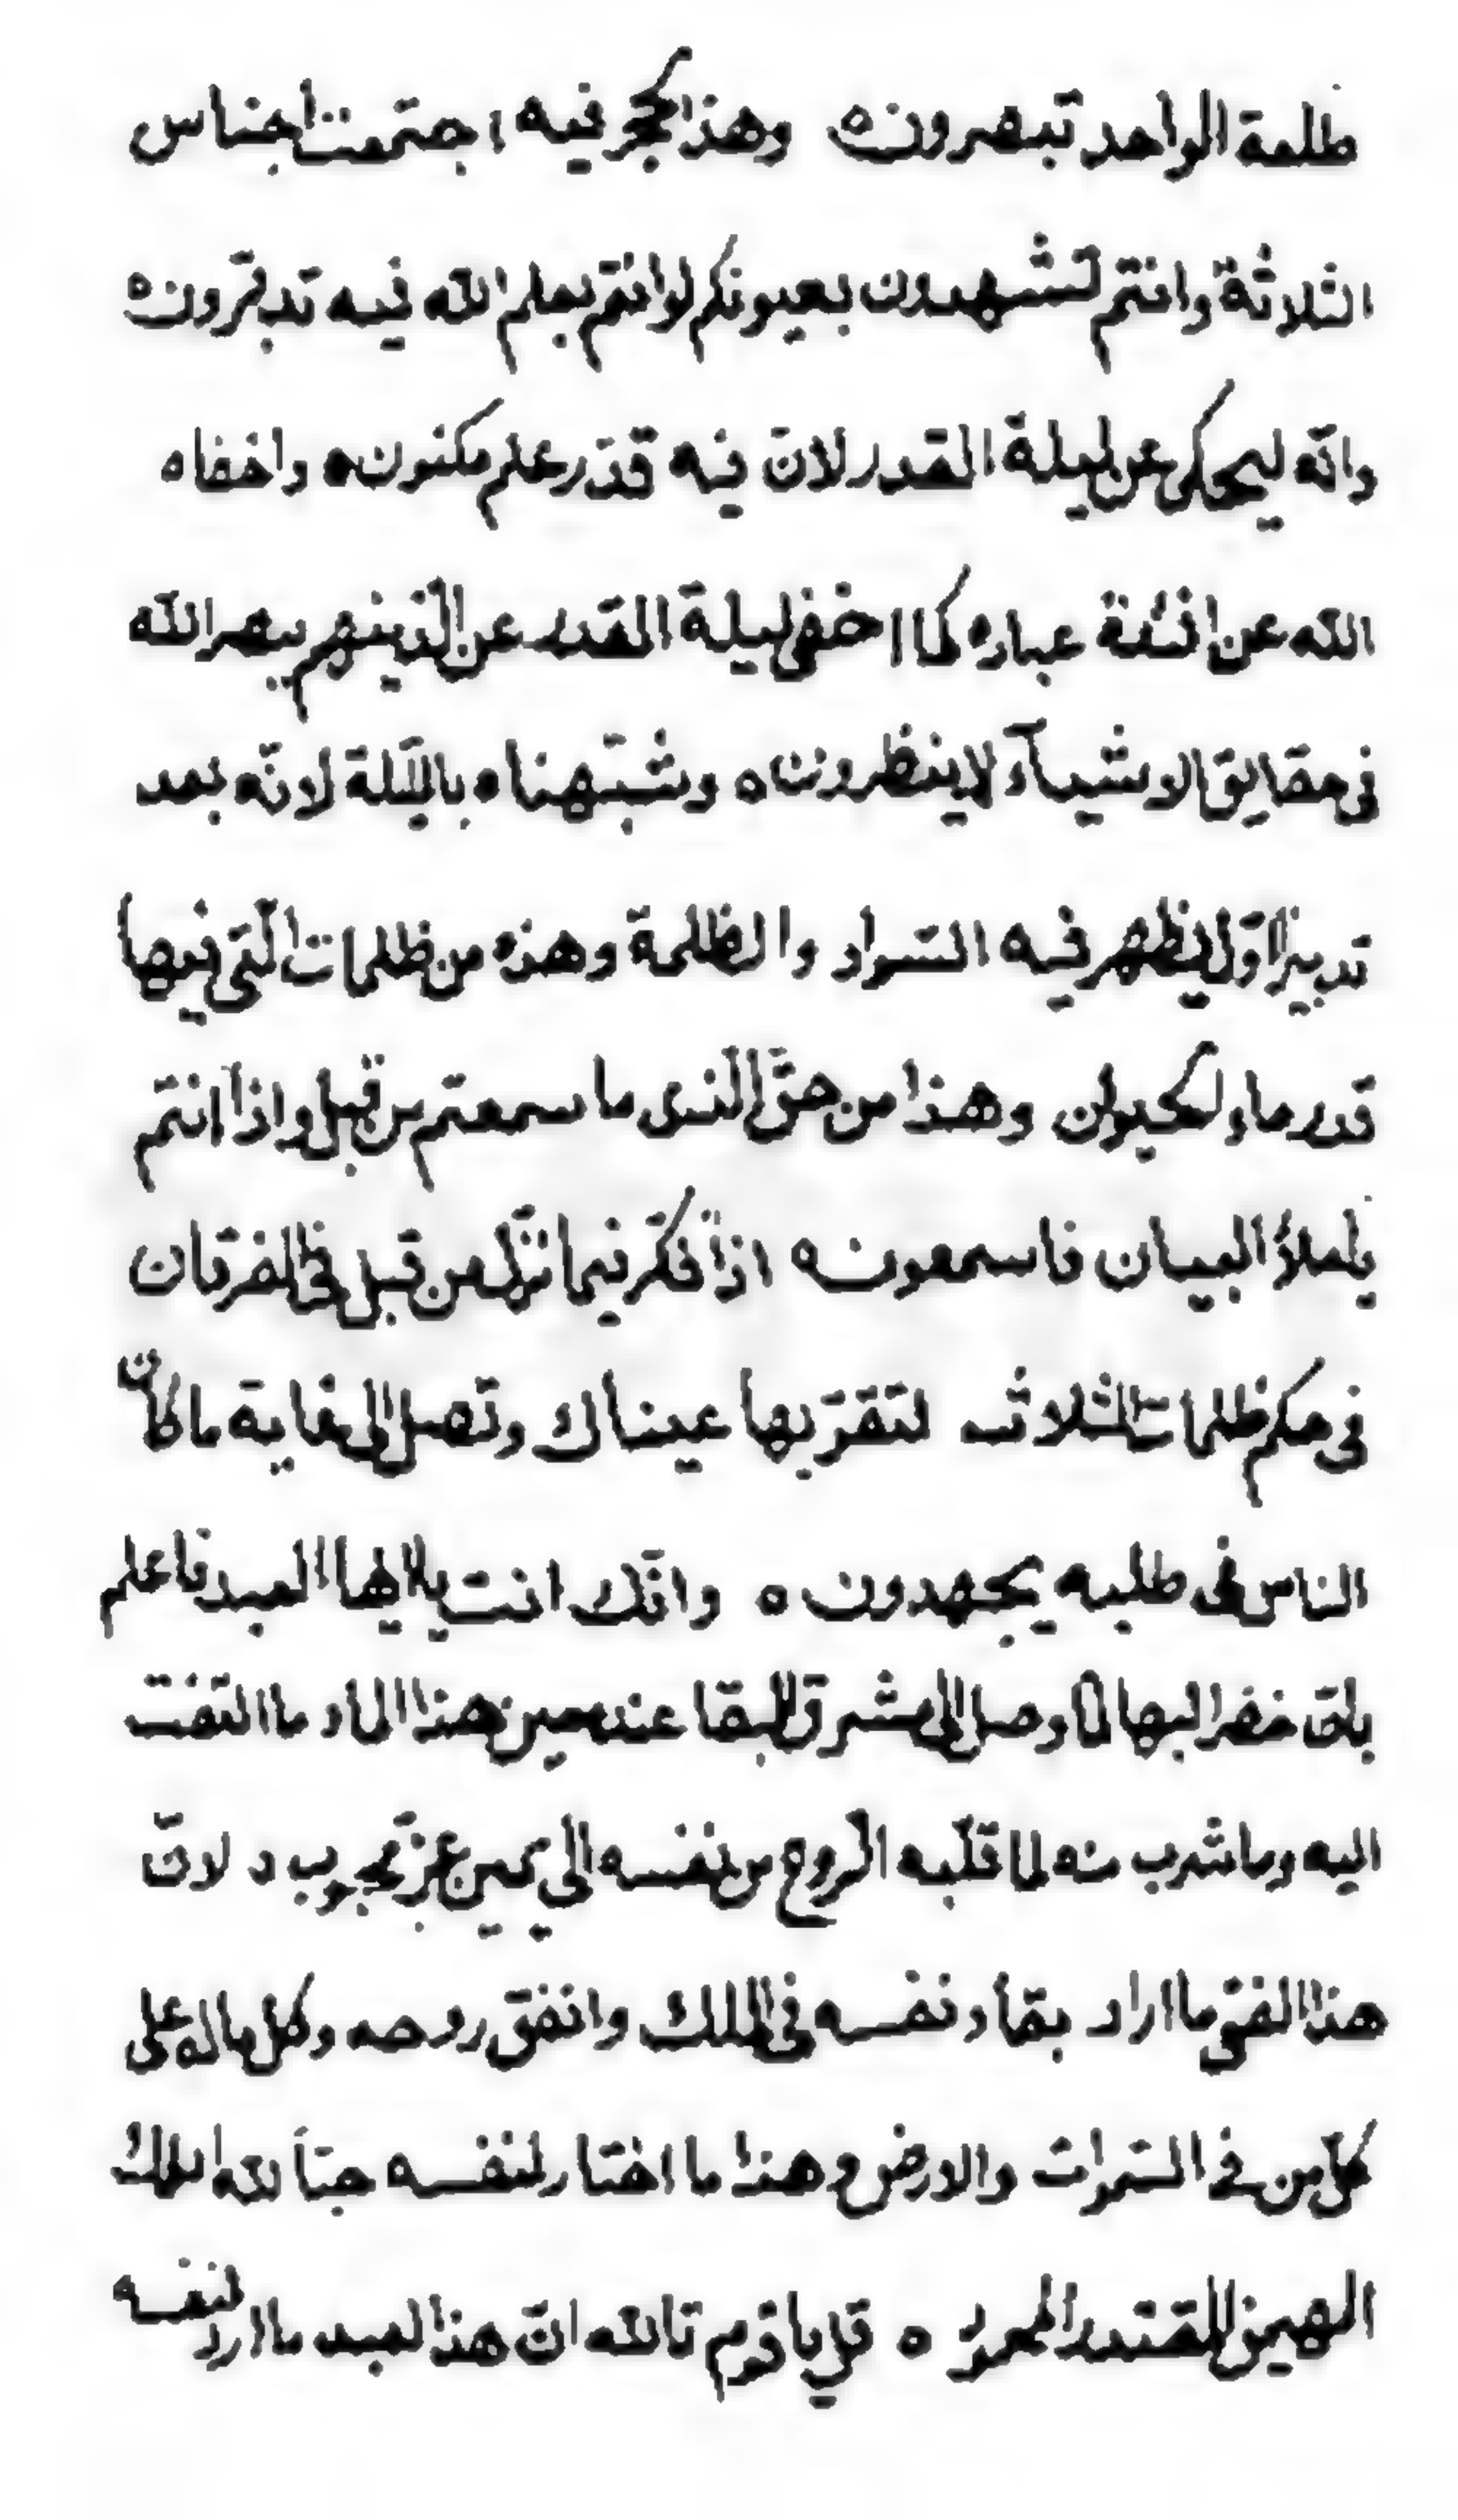 ظلمة الواحد تبصرون ه وهذا لحجر فيه اجتمعت اجناس
الثلاثة وانتم تشهدون بعيونكم لو انتم بعلم الله فيه تدبّرون ه
وانّه ليحكى عن ليلة القدر لانّ فيه قدّر علم مكنون ه واخفاه
الله عن افئدة عباده كما اخفى ليلة القدر عن الّذينهم ببصر الله
فى حقايق الاشيآء لاينظرون ه وشبّهناه باللّيلة لانّه بعد
تدبير الاوّل يظهر فيه السّواد والظلمة وهذه من ظلمات الّتى فيها
قدر ماء لحيوان وهذا من حقّ الّذى ما سمعتم من قبل واذا انتم
يا ملأ البيان فاسمعون ه اذا فكّر فيما نزّل من قبل فى الفرقان
فى حكم ظلمات الثلاث لتقرّ بها عيناك وتصل الى غاية ما كان
الناس فى طلبه يجهدون ه وانّك انت يا ايها العبد فاعلم
بانّ خضر البها لما وصل الى مشرق البقا عند معين هذا الماء ما التفت
اليه وما شرب منه لما قلّبه الرّوح من نفسه الى يمين عزّ محبوب ه لانّ
هذا الفتى ما اراد بقاء نفسه فى الملك وانفق روحه وكل ما له على
كلّ من فى السّموات والارض وهذا ما اختار لنفسه حبّاً لله الملك
المهيمن المقتدر المحمود ه قل يا قوم تالله انّ هذا لعبد ما اراد لنفسه